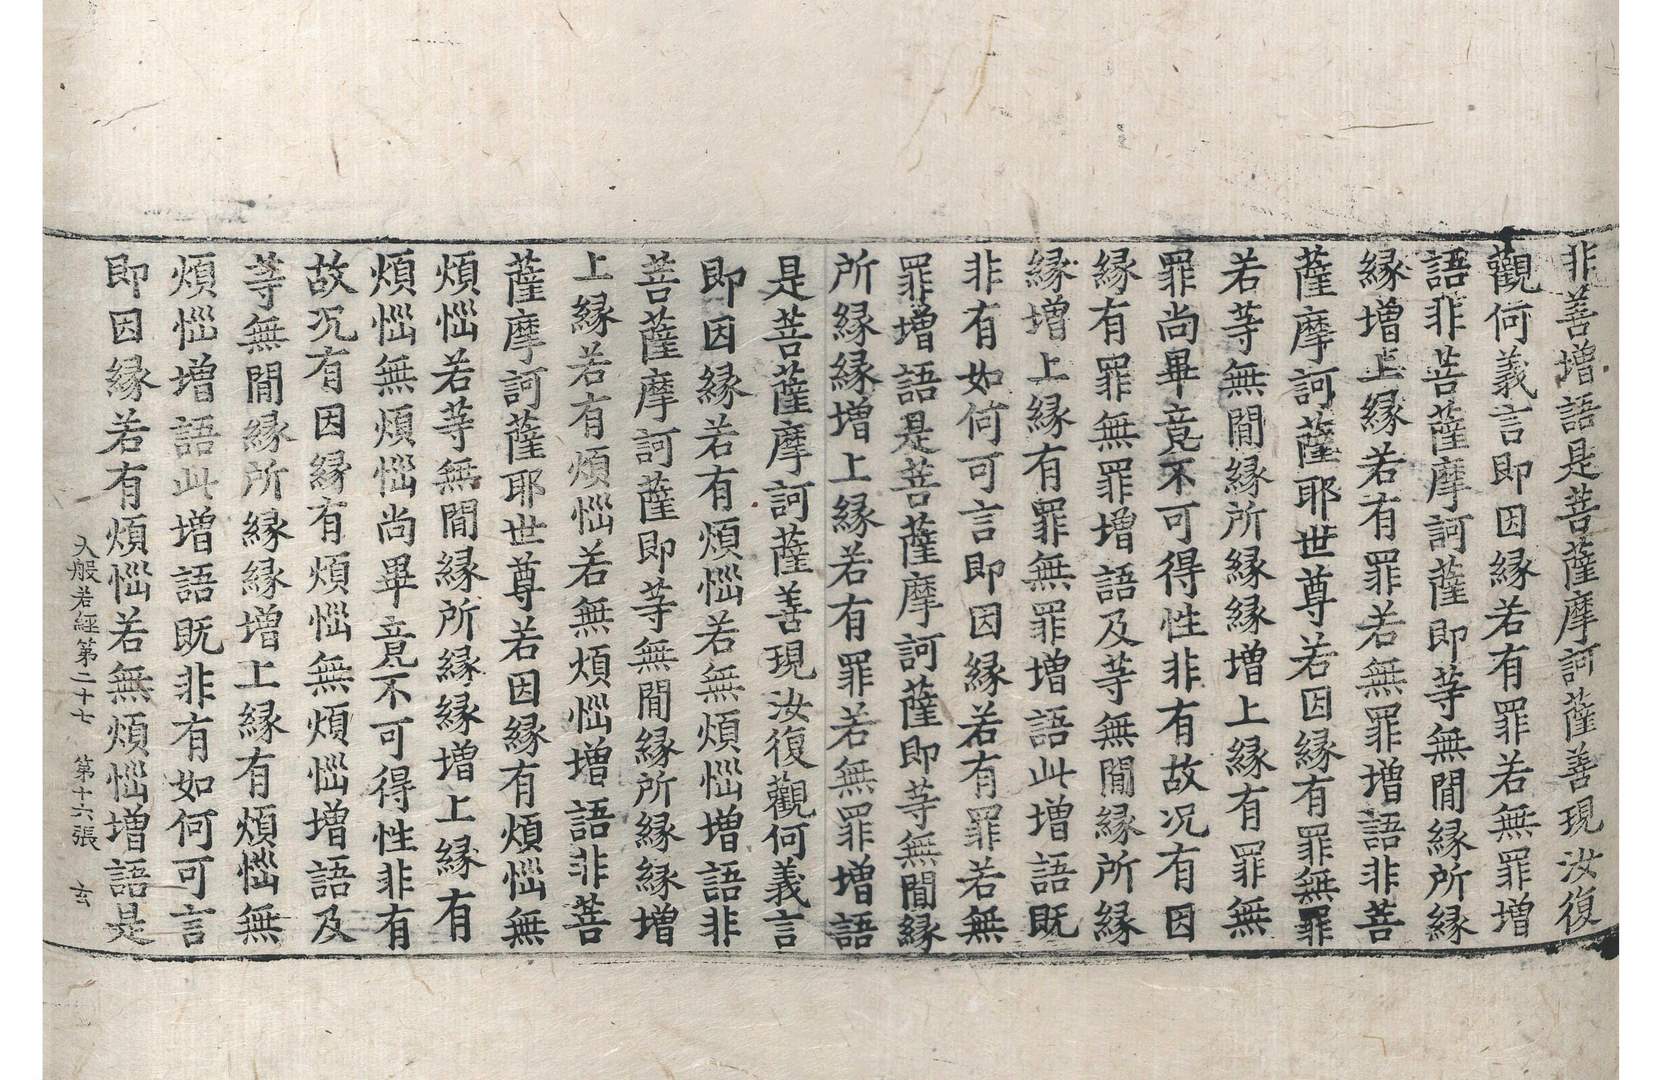 非善增語是菩薩摩訶薩善現汝復
觀何義言即因緣若有罪若無罪增
語非菩薩摩訶薩即等無閒緣所緣
緣增上緣若有罪若無罪增語非菩
薩摩訶薩耶世尊若因緣有罪無罪
若等無閒緣所緣緣增上緣有罪無
罪尚畢竟不可得性非有故况有因
緣有罪無罪增語及等無閒緣所緣
緣增上緣有罪無罪增語此增語既
非有如何可言即因緣若有罪若無
罪增語是菩薩摩訶薩即等無閒緣
所緣緣增上緣若有罪若無罪增語
是菩薩摩訶薩善現汝復觀何義言
即因緣若有煩惱若無煩惱增語非
菩薩摩訶薩即等無閒緣所緣緣增
上緣若有煩惱若無煩惱增語非菩
薩摩訶薩耶世尊若因緣有煩惱無
煩惱若等無閒緣所緣緣增上緣有
煩惱無煩惱尚畢竟不可得性非有
故况有因緣有煩惱無煩惱增語及
等無閒緣所緣緣增上緣有煩惱無
煩惱增語此增語既非有如何可言
即因緣若有煩惱若無煩惱增語是
大般若經第二十七 第十六張 玄